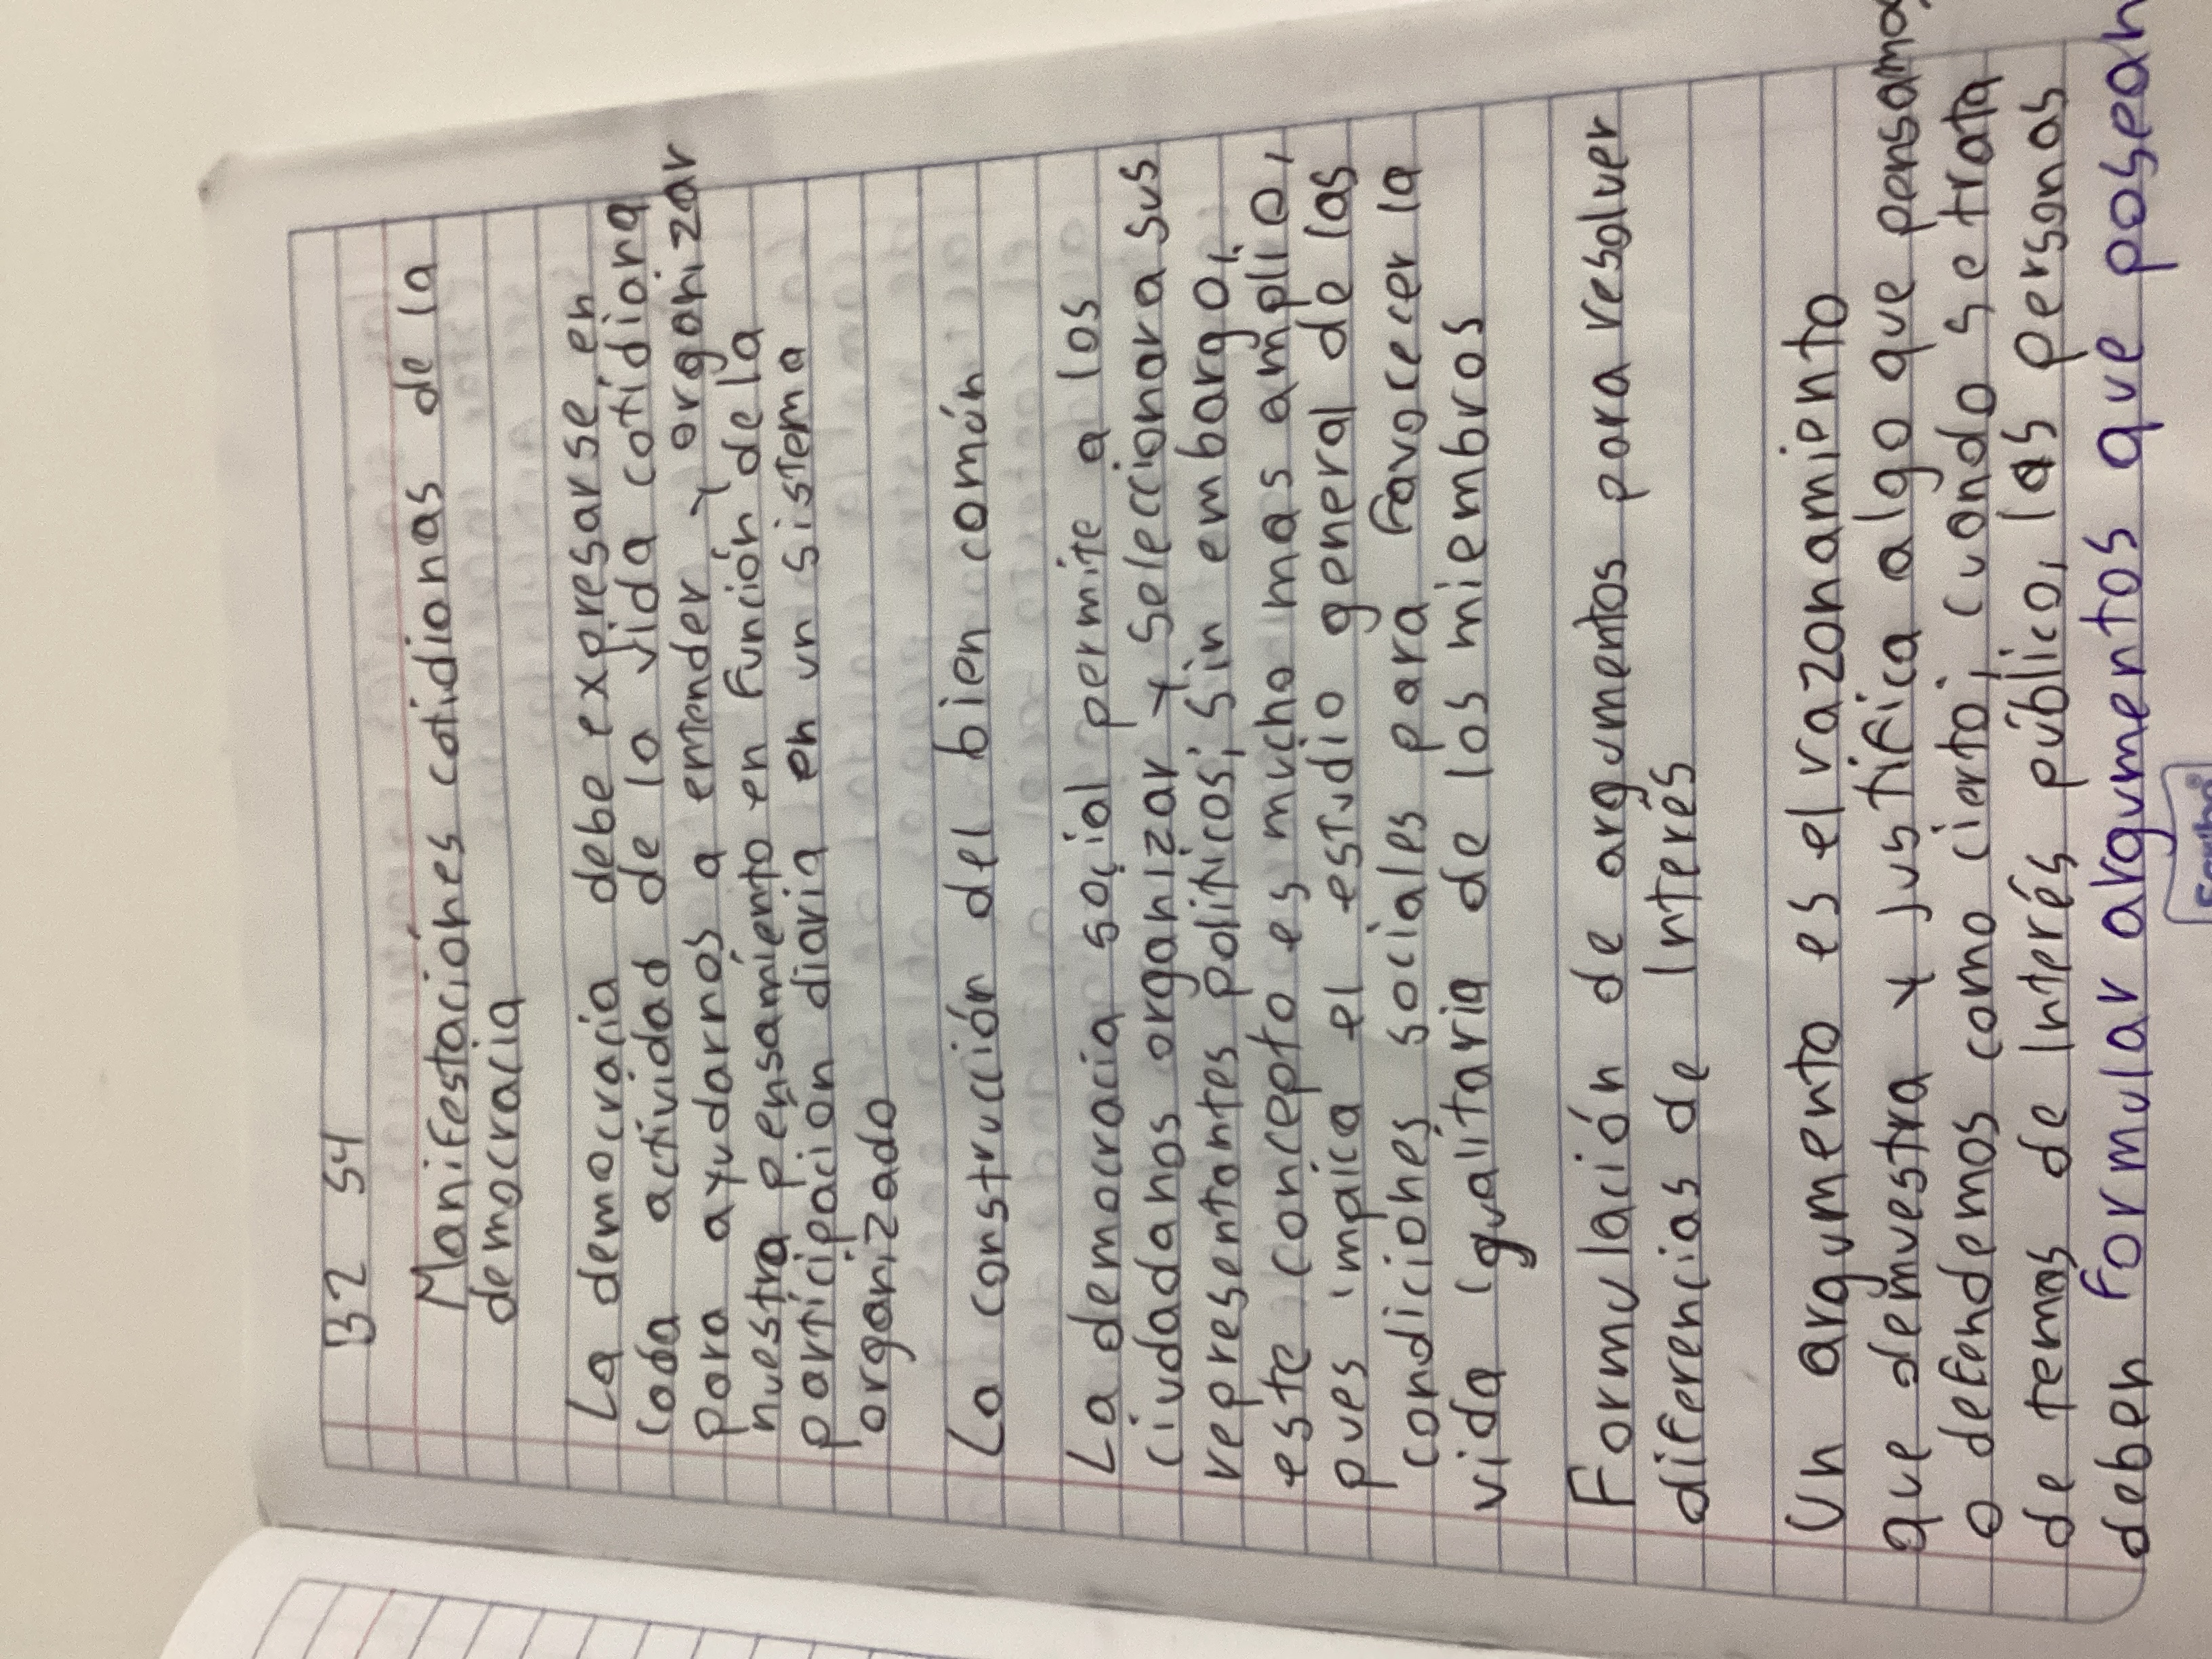 B2 S4
Manifestaciónes cotidianas de la
democracia
La democracia debe expresarse en
cada actividad de la vida cotidiana
para ayudarnos a entender y organizar
nuestra pensamiento en función de la
participación diaria en un sistema
organizado
La construcción del bien común
La democracia social permite a los
ciudadanos organizar y seleccionar a sus
representantes políticos; sin embargo,
este concepto es mucho mas amplio,
pues impica el estudio general de las
condiciones sociales para favocecer la
vida igualitaria de los miembros
Formulación de argumentos para resolver
diferencias de Interés
Un argumento es el razonamiento
que demuestra y justifica algo que pensamos
o defendemos como cierto, cuando se trata
de temas de Interés público, las personas
deben formular argumentos que posean